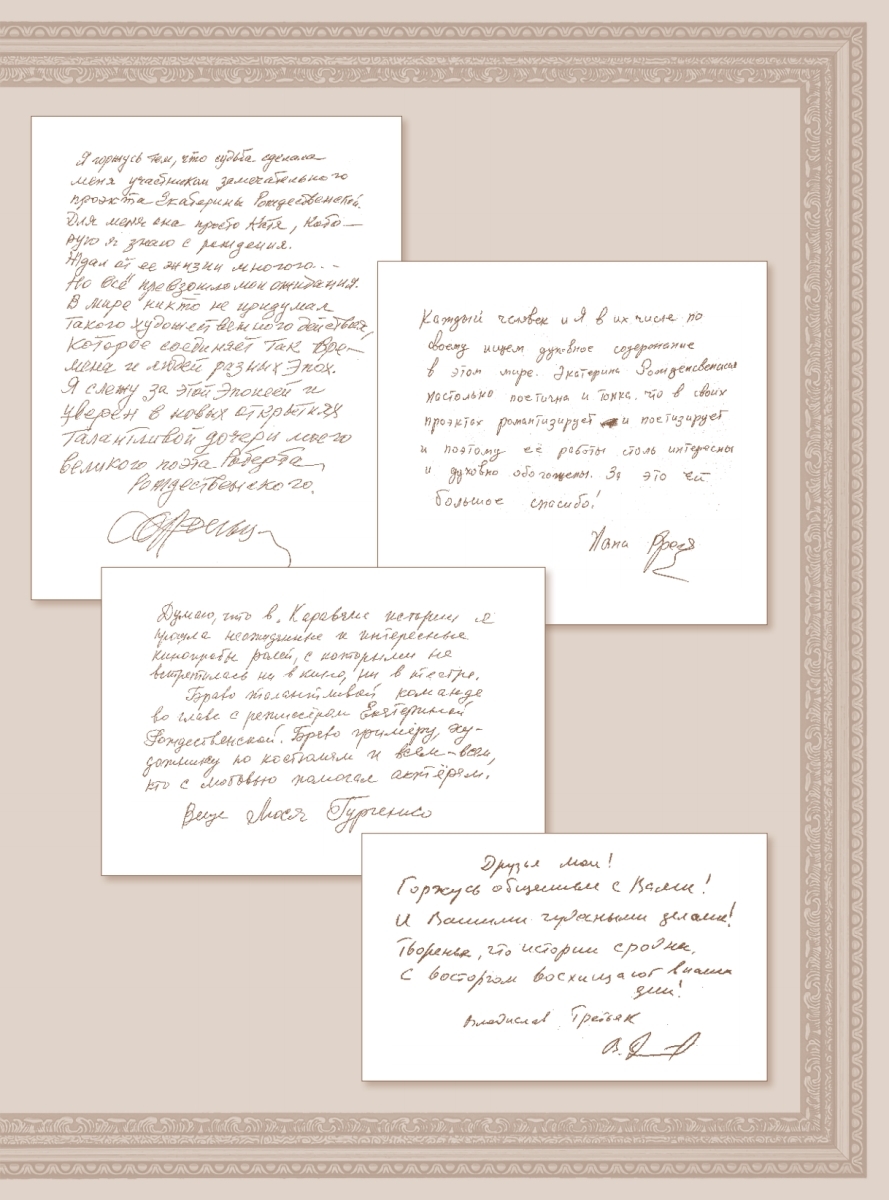 Я горжусь тем, что судьба сделала
меня участником замечательного
проэкта Екатерины Рождественской.
Для меня она просто Катя, кото-
рую я знаю с рождения.
Ждал от ее жизни многого...-
Но всё превзошло мои ожидания.
В мире никто не придумал
такого художественного действия,
которое соединяет так вре-
мена и людей разных Эпох.
Я слежу за этой Эпопеей и
уверен в новых открытиях
талантливой дочери моего
великого поэта Роберта
Рождественского.
Каждый человек и Я в их числе по
своему ищем духовное содержание
в этом мире. Екатерина Рождественская
настолько поэтична и тонка, что в своих
проэктах романтизирует и поэтизирует
и поэтому её работы столь интересны
и духовно обогащены. За это ей
большое спасибо!
Думаю, что в "Караване истории" я
прошла неожиданные и интересные
кинопробы ролей, с которыми не
встретилась ни в кино, ни в театре.
Браво талантливой команде
во главе с режиссёром Екатериной
Рождественской. Браво гримёру, ху-
дожнику по костюмам и всем-всем,
кто с любовью помогал актёрам.
Ваша Люся Гурченко
Друзья мои!
Горжусь общением с Вами!
И Вашими чудесными делами!
Творенья, что истории сродни,
С восторгом восхищают в наши
дни!
Владислав Третьяк